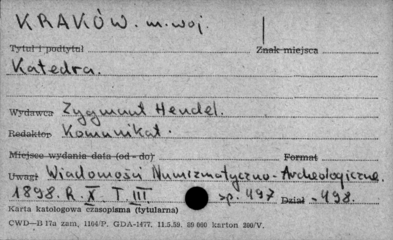 KRAKÓW. m. woj.
Tytuł i podtytuł Znak miejsca
Katedra.
Wydawca Zygmunt Hendel.
Redaktor Komunikat.
Miejsce wydania data (od - do) Format
Uwagi Wiadomości Numizmatyczno-Archeologiczne.
1898. R. X. T. III sp. 497 Dział -498.
Karta katologowa czasopisma (tytularna)
CWD—B 17a zam, 1104/P. GDA-1477. 11.5.59. 50 000 karton 200/V.